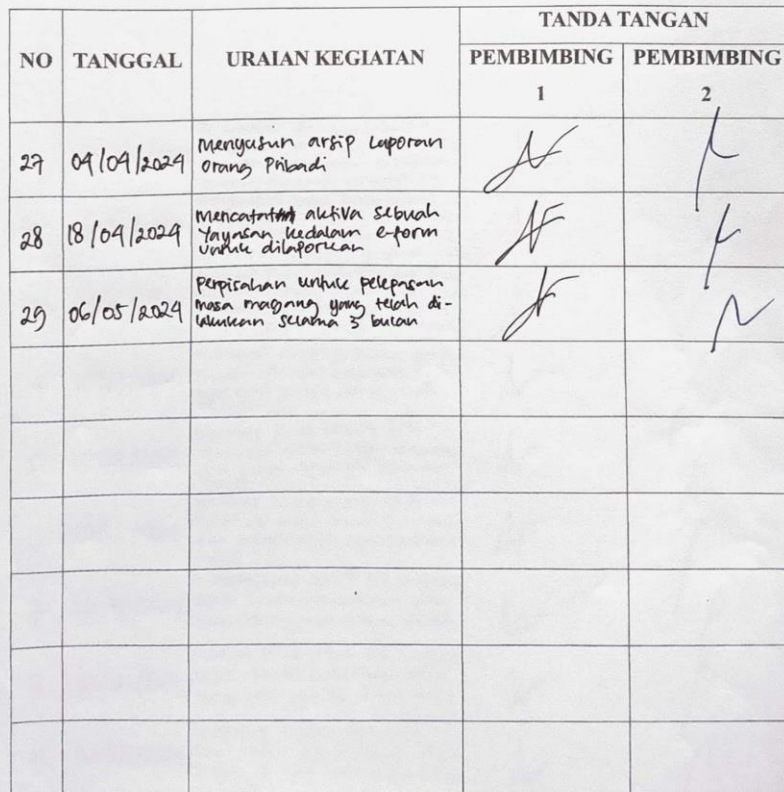 TANDA TANGAN
NO TANGGAL URAIAN KEGIATAN PEMBIMBING PEMBIMBING
1 2
27 04/04/2024 Menyusun arsip Laporan
Orang Pribadi
28 18/04/2024 Mencatat aktiva sebuah
Yayasan kedalam e-form
untuk dilaporkan
29 06/05/2024 Perpisahan untuk pelepasan
masa magang yang telah di-
lakukan selama 3 bulan